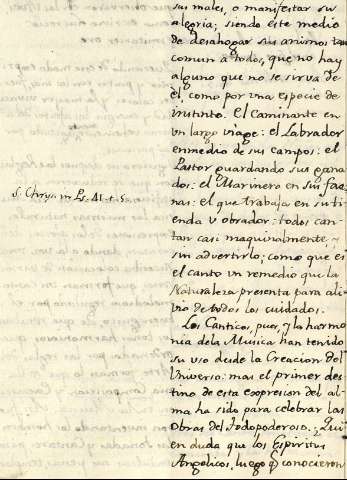 sus males, o manifestar su
alegria; siendo este medio
de desahogar sus animos tan
comun a todos, que no hay
alguno que no se sirva de
èl, como por una especie de
instinto. El Caminante en
un largo viage: el Labrador
enmedio de sus campos: el
Pastor guardando sus gana
dos: el Marinero en sus fae
nas: el que trabaja en su ti
enda u obrador: todos can
tan casi maquinalmente, y
sin advertirlo; como que es
el canto un remedio que la
Naturaleza presenta para ali
vio de todos los cuidados.
S. Chrys. in Ps. 41
Los Canticos, pues, y la harmo
nia dela Musica han tenido
su uso desde la Creacion del
Universo: mas el primer des
tino de esta expresion del al
ma ha sido para celebrar las
Obras del Todopoderoso. ¿Qui
en duda que los Espiritus
Angelicos, luego q̃ conocieron